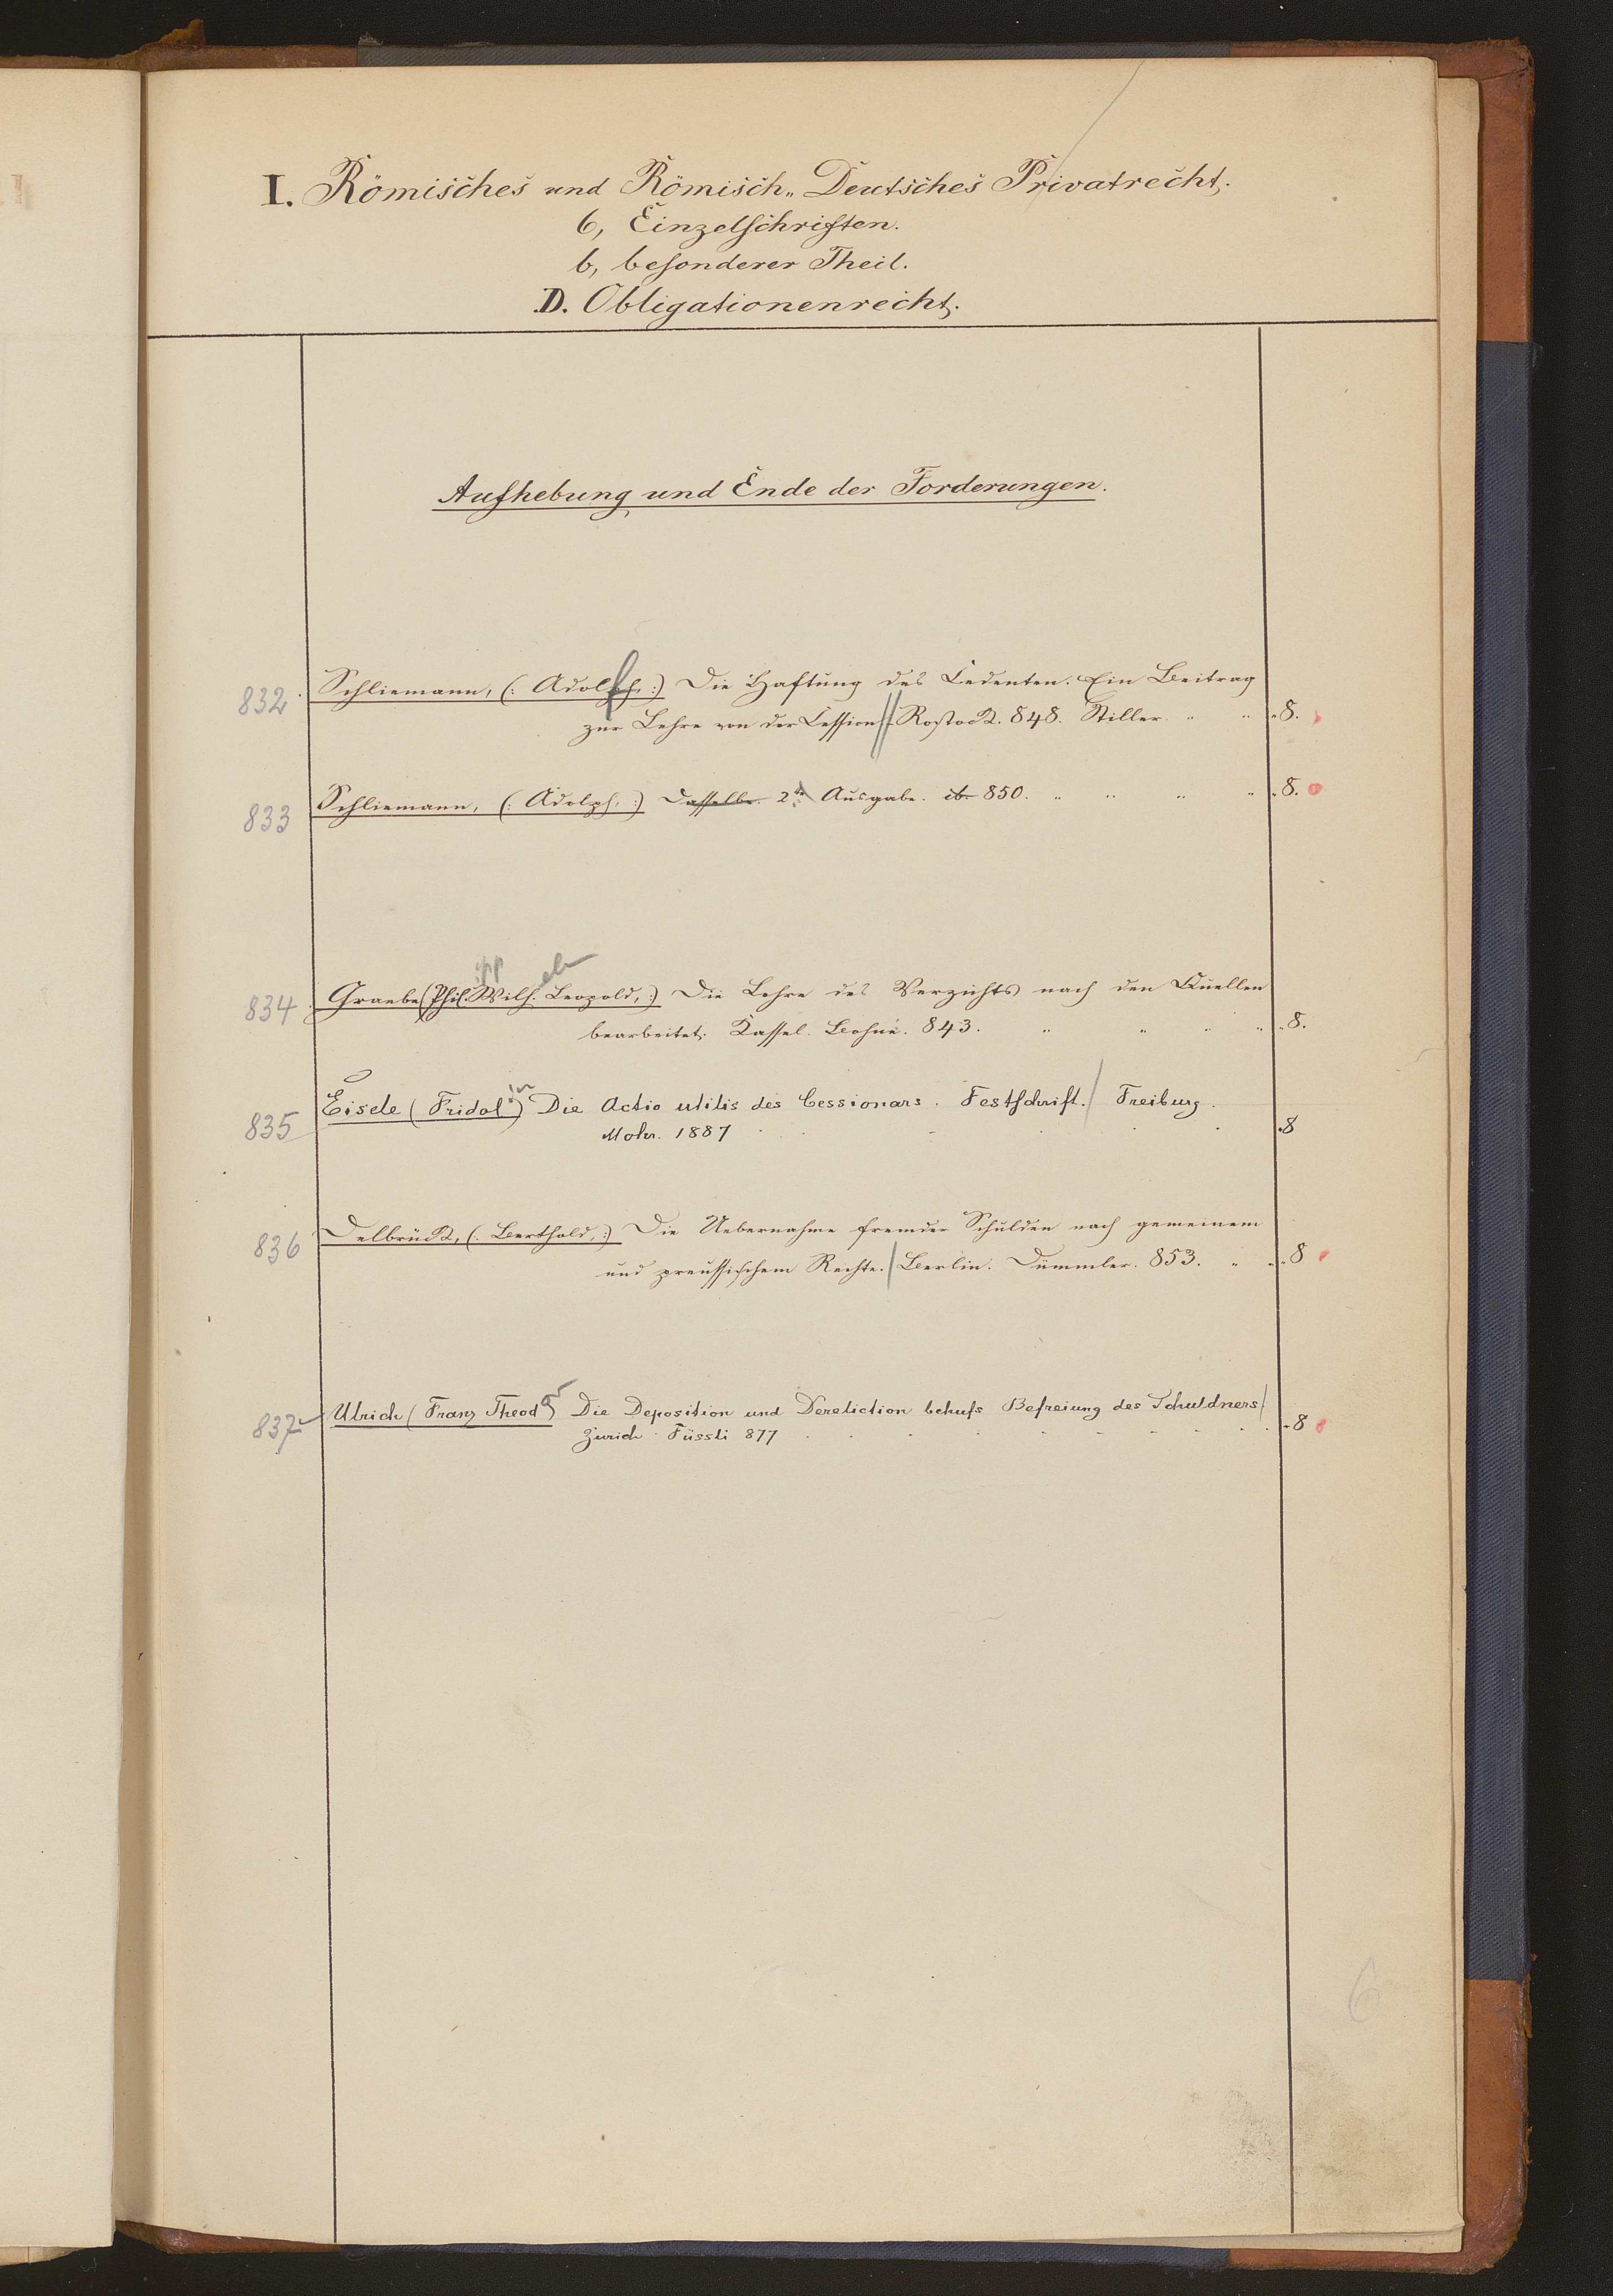 I. Römisches und Römisch„ Deutsches Privatrecht.
6, Einzelschriften.
b, besonderer Theil.
D. Obligationenrecht.
Aufhebung und Ende der Forderungen.
832. Schliemann, (: Adolph, :) Die Haftung des Cedenten. Ein Beitrag
zur Lehre von der Cession. Rostock. 848. Stiller. " " " 8.
833 Schliemann, (: Adolph, :) Dasselbe. 2te Ausgabe. ib. 850. " " " " " 8.
ipp elm
834 Graebe (Phil. Wilh. Leopold, :) Die Lehre des Verzichts nach den Quellen
bearbeitet. Kassel. Bohné. 843. " " " " " 8.
835 Eisele (Fridolin) Die Actio utilis des Cessionars. Festschrift. Freiburg.
Mohr. 1887 . . . . . . 8
836 Delbrück, (: Berthold, :) Die Uebernahme fremder Schulden nach gemeinem
und preussischem Rechte. Berlin. Dümmler. 853. " " " 8
837 Ulrich (Franz Theodor) Die Deposition und Dereliction behufs Befreiung des Schuldners
Zürich Füssli 877 . . . . . . . . . 8
6